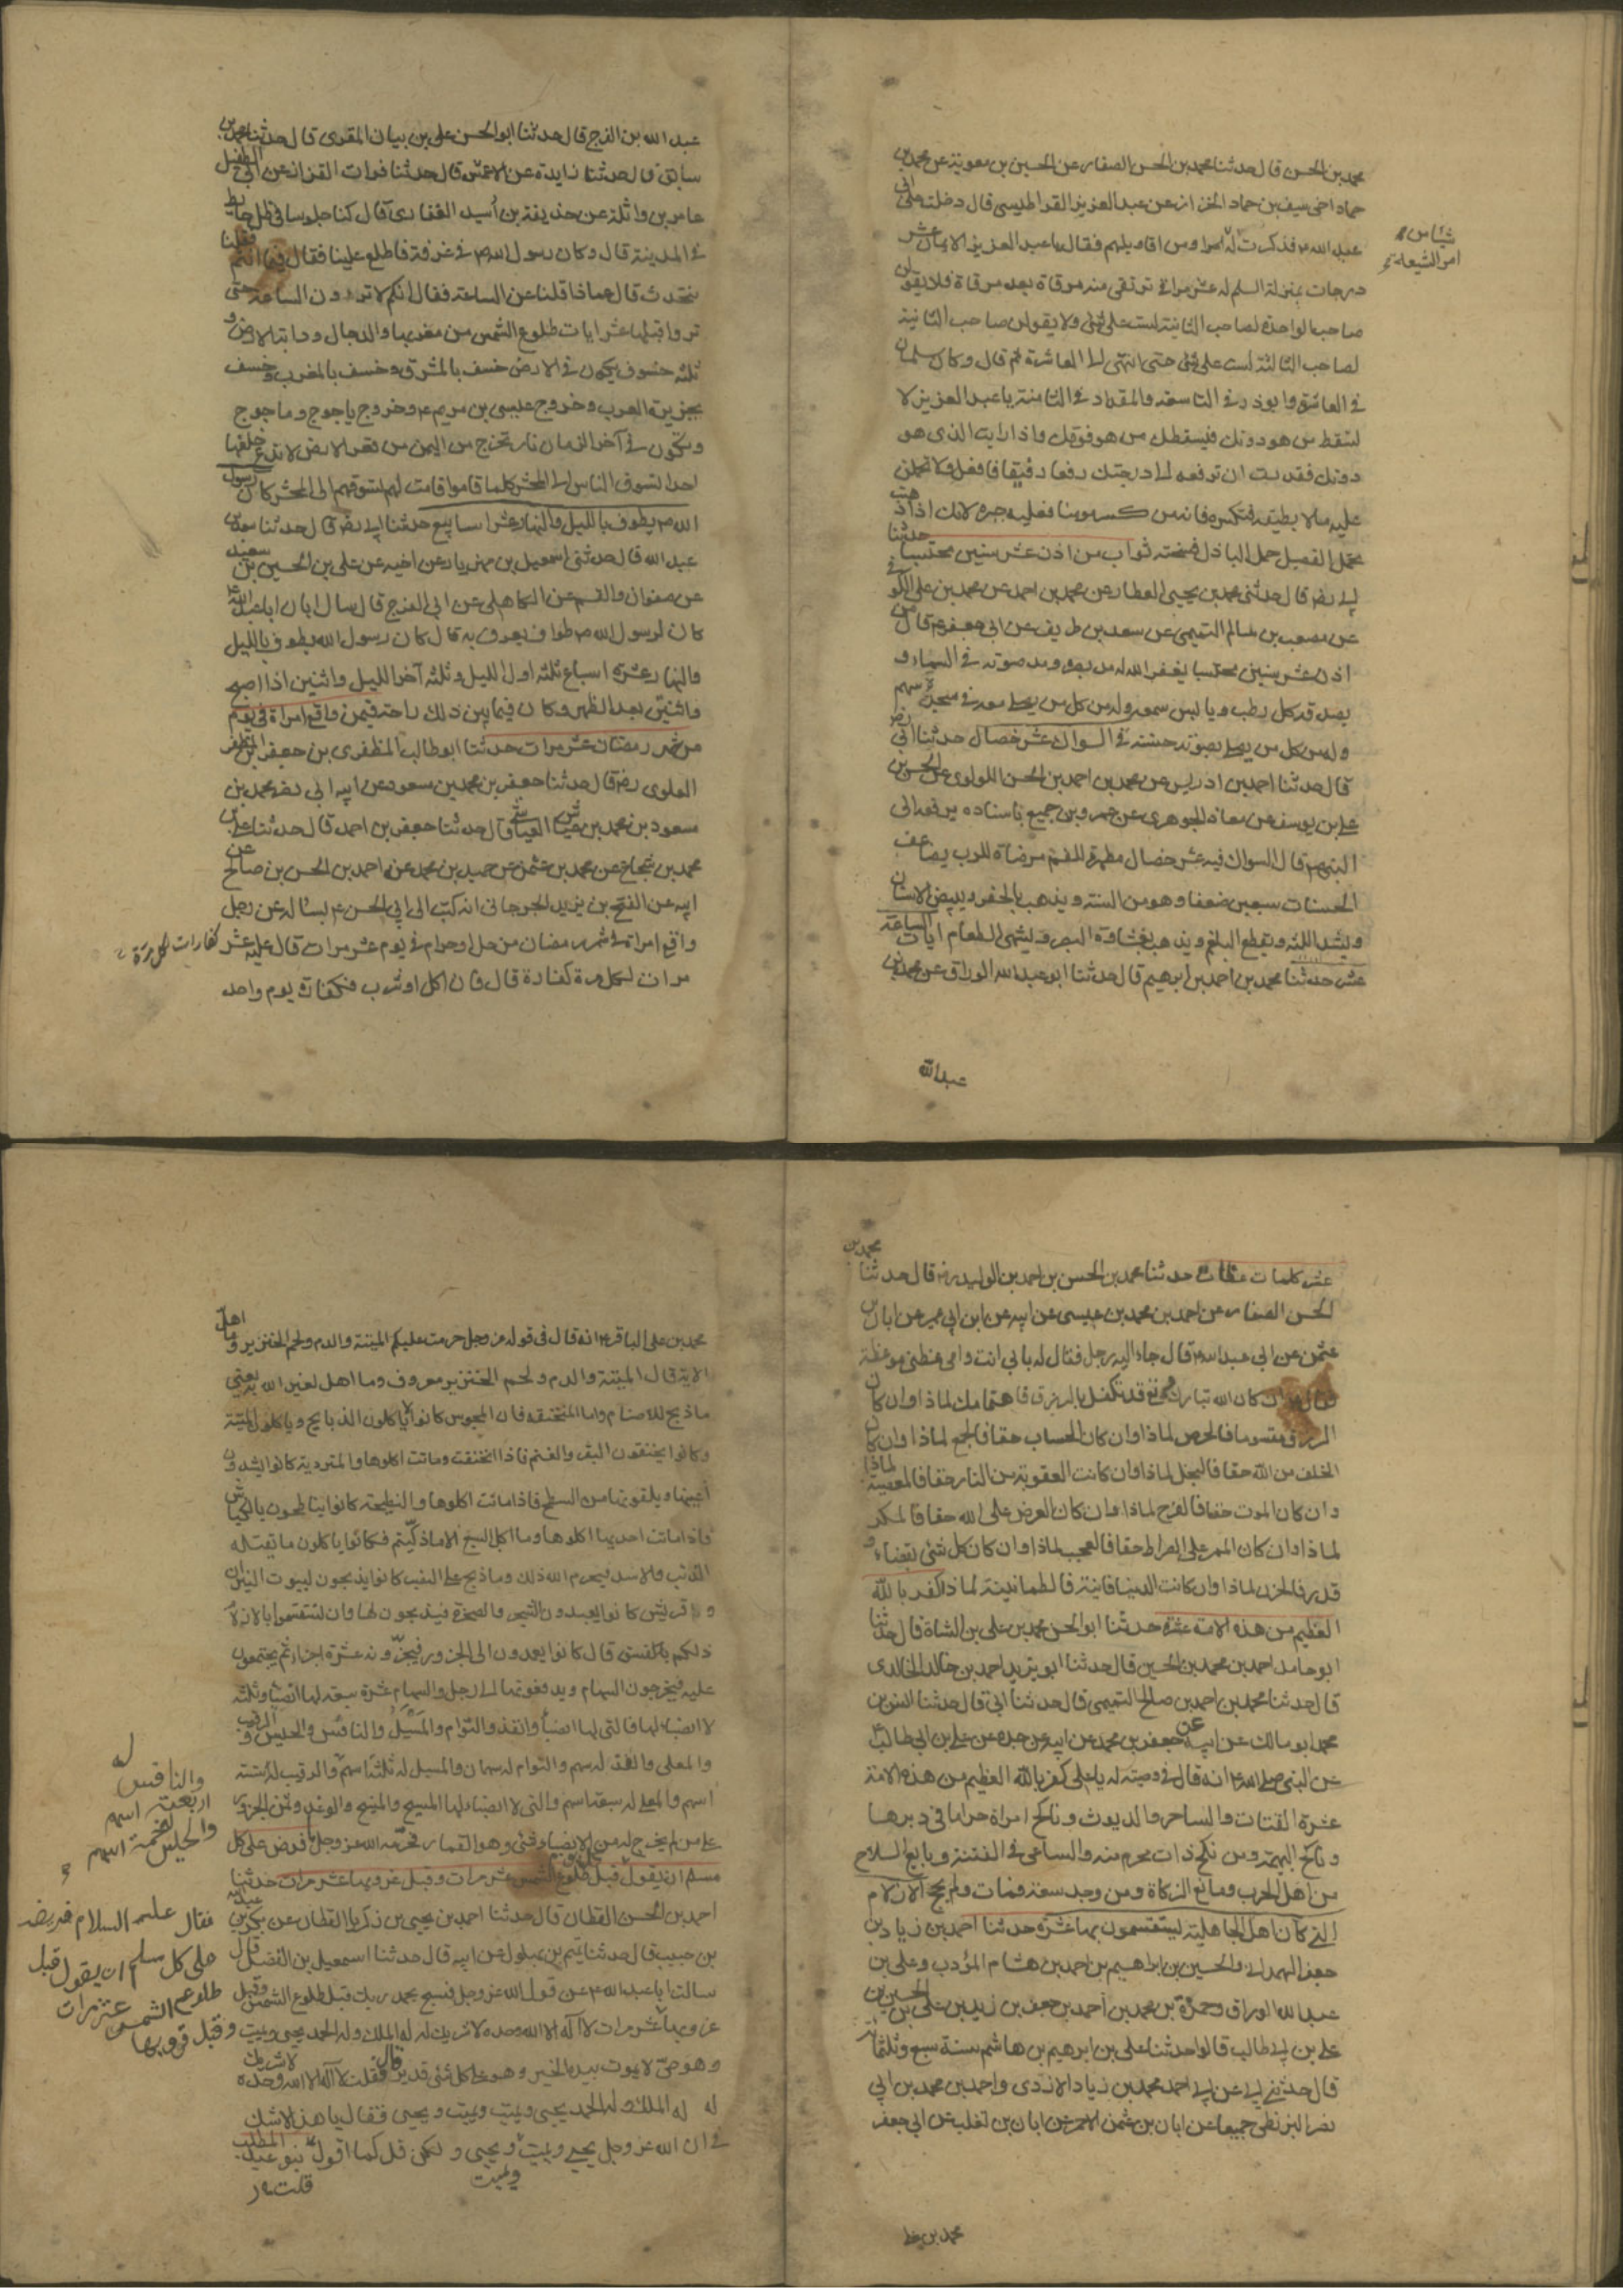 محمد بن الحسن قال حدثنا محمد بن الحسن الصفار عن الحسين بن معوية عن محمد بن
حماد اخي يوسف بن حماد الخزاز عن عبد العزيز القراطيسي قال دخلت على ابي
عبد الله ع فذكرت له امرا ومن اقاويلهم فقال يا عبد العزيز الايمان عشر
شيئا من
امر الشيعة
درجات بمنزلة السلم له عشر مراقي ترتقى منه مرقاة بعد مرقاة فلا يقولن
صاحب الواحدة لصاحب الثانية لست على شئ ولا يقولن صاحب الثانية
لصاحب الثالثة لست على شئ حتى انتهى الى العاشرة ثم قال وكان سلمان
في العاشرة وابوذر في التاسعة والمقداد في الثامنة يا عبد العزيز لا
تسقط من هو دونك فيسقطك من هو فوقك واذا رايت الذي هو
دونك فقدرت ان ترفعه الى درجتك رفعا رفيقا فافعل ولا تحملن
عليه ما لا يطيقه فتكسره فانه من كسر مومنا فعليه جبره لانك اذا ذهبت
تحمل الفصيل حمل الباذل فسخته ثواب من اذن عشر سنين محتسبا حدثنا
ابي رض قال حدثني محمد بن يحيى العطار عن محمد بن احمد عن محمد بن علي الكوفي
عن مصعب بن سالم التميمي عن سعد بن طريف عن ابي جعفر ع قال من
اذن عشر سنين محتسبا يغفر الله له مد بصره ومد صوته في السماء و
يصدقه كل رطب ويابس سمعه وله من كل من يصلي معه في مسجده سهم
وله من كل من يصلي بصوته حسنة في السواك عشر خصال حدثنا ابي رض
قال حدثنا احمد بن ادريس عن محمد بن احمد بن الحسن اللولوي عن الحسن بن
علي بن يوسف عن معاذ الجوهري عن عمرو بن جميع باسناده يرفعه الى
النبي ص قال السواك فيه عشر خصال مطهرة للفم مرضاة للرب يضاعف
الحسنات سبعين ضعفا وهو من السنة ويذهب بالحفر ويبيض الاسنان
ويشد اللثة ويقطع البلغم ويذهب بغشاوة البصر ويشهي الطعام ايات الساعة
عشر حدثنا محمد بن احمد بن ابرهيم قال حدثنا ابو عبد الله الوراق عن محمد بن
عبد الله
عبد الله بن الفرج قال حدثنا ابو الحسن علي بن بيان المقري قال حدثنا محمد بن
سابق قال حدثنا زايدة عن الاعمش قال حدثنا فرات القزاز عن ابي الطفيل
عامر بن واثلة عن حذيفة بن أسيد الغفاري قال كنا جلوسا في ظل حايط
في المدينة قال وكان رسول الله ص في غرفة فاطلع علينا فقال فيما انتم فقلنا
نتحدث قال عماذا قلنا عن الساعة فقال انكم لا ترون الساعة حتى
تروا قبلها عشر ايات طلوع الشمس من مغربها والدجال ودابة الارض و
ثلثه خسوف يكون في الارض خسف بالمشرق وخسف بالمغرب وخسف
بجزيرة العرب وخروج عيسى بن مريم ع وخروج ياجوج وماجوج
ويكون في آخر الزمان نار تخرج من اليمن من قعر الارض لا تدع خلفها
احدا تسوق الناس الى المحشر كلما قاموا قامت لهم تسوقهم الى المحشر كان رسول
الله ص يطوف بالليل والنهار عشرا سابيع حدثنا ابي رض قال حدثنا سعد بن
عبد الله قال حدثني اسمعيل بن مهزيار عن اخيه علي عن الحسين بن سعيد
عن صفوان والقسم عن الكاهلي عن ابي الفرج قال سال ابان ابا عبد الله
كان لرسول الله ص طواف يعرف به قال كان رسول الله يطوف بالليل
والنهار عشرة اسباع ثلثه اول الليل وثلثه آخر الليل واثنين اذا اصبح
واثنين بعد الظهر وكان فيما بين ذلك راحته فيمن واقع امراة في يوم
من شهر رمضان عشر مرات حدثنا ابو طالب المظفر بن جعفر بن المظفر
العلوي رض قال حدثنا جعفر بن محمد بن مسعود عن ابيه ابي نضر محمد بن
مسعود بن محمد بن عياش العياشي قال حدثنا جعفر بن احمد قال حدثنا علي بن
محمد بن شجاع عن محمد بن عثمن عن حميد بن محمد عن احمد بن الحسن بن صالح عن
ابيه عن الفتح بن يزيد الجرجاني انه كتب الى ابي الحسن ع يساله عن رجل
واقع امراة في شهر رمضان من حل او حرام في يوم عشر مرات قال عليه عشر كفارات لكل مرة
مرات لكل مرة كفارة قال فان اكل او شرب فكفارة يوم واحد
عشر كلمات عظات حدثنا محمد بن الحسن بن احمد بن الوليد رض قال حدثنا محمد بن
الحسن الصفار عن احمد بن محمد بن عيسى عن ابيه عن ابن ابي عمير عن ابان بن
عثمن عن ابي عبد الله ع قال جاء اليه رجل فقال له بابي انت وامي عظني موعظة
فقال ان كان الله تبارك وتع قد تكفل بالرزق فاهتمامك لماذا وان كان
الرزق مقسوما فالحرص لماذا وان كان الحساب حقا فالجمع لماذا وان كان
الخلف من الله حقا فالبخل لماذا وان كانت العقوبة من النار حقا فالمعصية لماذا
وان كان الموت حقا فالفرح لماذا وان كان العرض على الله حقا فالمكر
لماذا وان كان الممر على الصراط حقا فالعجب لماذا وان كان كل شئ بقضاء و
قدر فالحزن لماذا وان كانت الدنيا فانية فالطمانينة لماذا كفر بالله
العظيم من هذه الامة عشرة حدثنا ابو الحسن محمد بن علي بن الشاة قال حدثنا
ابو حامد احمد بن محمد بن الحسين قال حدثنا ابو يزيد احمد بن خالد الخالدي
قال حدثنا محمد بن احمد بن صالح التميمي قال حدثنا ابي قال حدثنا انس بن
محمد ابو مالك عن ابيه عن جعفر بن محمد عن ابيه عن جده عن علي بن ابي طالب ع
عن النبي صلى الله انه قال في وصيته له يا علي كفر بالله العظيم من هذه الامة
عشرة القتات والساحر والديوث وناكح امراة حراما في دبرها
وناكح البهيمة ومن نكح ذات محرم منه والساعي في الفتنة وبايع السلاح
من اهل الحرب ومانع الزكاة ومن وجد سعة فمات ولم يحج الازلام
التي كان اهل الجاهلية يستقسمون بها عشرة حدثنا احمد بن زياد بن
جعفر الهمداني والحسين بن ابراهيم بن احمد بن هشام المؤدب وعلي بن
عبد الله الوراق وحمزة بن محمد بن أحمد بن جعفر بن زيد بن علي بن الحسين بن
علي بن ابي طالب قالوا حدثنا علي بن ابرهيم بن هاشم سنة سبع وثلثمائة
قال حدثني ابي عن ابي احمد محمد بن زياد الازدي واحمد بن محمد بن ابي
نصر البزنطي جميعا عن ابان بن عثمن الاحمر عن ابان بن تغلب عن ابي جعفر
محمد بن علي الباقر ع انه قال في قوله عز وجل حرمت عليكم الميتة والدم ولحم الخنزير وما اهل
الاية قال الميتة والدم ولحم الخنزير معروف وما اهل لغير الله به يعني
ما ذبح للاصنام واما المنخنقه فان المجوس كانوا لا ياكلون الذبايح وياكلون الميتة
وكانوا يخنقون البقر والغنم فاذا انخنقت وماتت اكلوها والمتردية كانوا يشدون
أعينها ويلقونها من السطح فاذا ماتت اكلوها والنطيحة كانوا يناطحون بالكباش
فاذا ماتت احديها اكلوها وما اكل السبع الا ما ذكيتم فكانوا ياكلون ما يقتله
الذئب والاسد فحرم الله ذلك وما ذبح على النصب كانوا يذبحون لبيوت النيران
وقريش كانوا يعبدون الشجر والصخرة فيذبحون لها وان تستقسموا بالازلام
ذلكم فسق قال كانوا يعمدون الى الجزور فيجزونه عشرة اجزاء ثم يجتمعون
عليه فيخرجون السهام ويدفعونها الى رجل والسهام عشرة سبعة لها انصباء وثلثه
لا انصباء لها فالتي لها انصباء والفذ والتوام والمسبل والنافس والحلس والرقيب
والمعلى والفذ له سهم والتوام له سهمان والمسبل له ثلثة اسهم والرقيب له ستة
له
والنافس
اربعة اسهم
والحلس خمسة اسهم
اسهم والمعلى له سبعة اسهم والتي لا انصباء لها السفيح والمنيح والوغد وثمن الجزور
على من لم يخرج له من الانصباء شئ وهو القمار فحرمه الله عز وجل فرض على كل
مسلم ان يقول قبل طلوع الشمس عشر مرات وقبل غروبها عشر مرات حدثنا
احمد بن الحسن القطان قال حدثنا احمد بن يحيى بن زكريا القطان عن بكر بن عبد الله
بن حبيب قال حدثنا تميم بن بهلول عن ابيه قال حدثنا اسمعيل بن الفضل قال
سالت ابا عبد الله ع عن قول الله عز وجل فسبح بحمد ربك قبل طلوع الشمس وقبل
فقال عليه السلام فريضة
على كل مسلم ان يقول قبل
طلوع الشمس عشر مرات
وقبل غروبها
غروبها عشر مرات لا آله الا الله وحده لا شريك له له الملك وله الحمد يحيي ويميت
وهو حي لا يموت بيده الخير وهو على كل شئ قدير قال فقلت لا آله الا الله وحده لا شريك
له له الملك وله الحمد يحيي ويميت ويميت ويحيي فقال يا هذا لا شك
في ان الله عز وجل يحيي ويميت ويميت ويحيي ولكن قل كما اقول بنو عبد المطلب